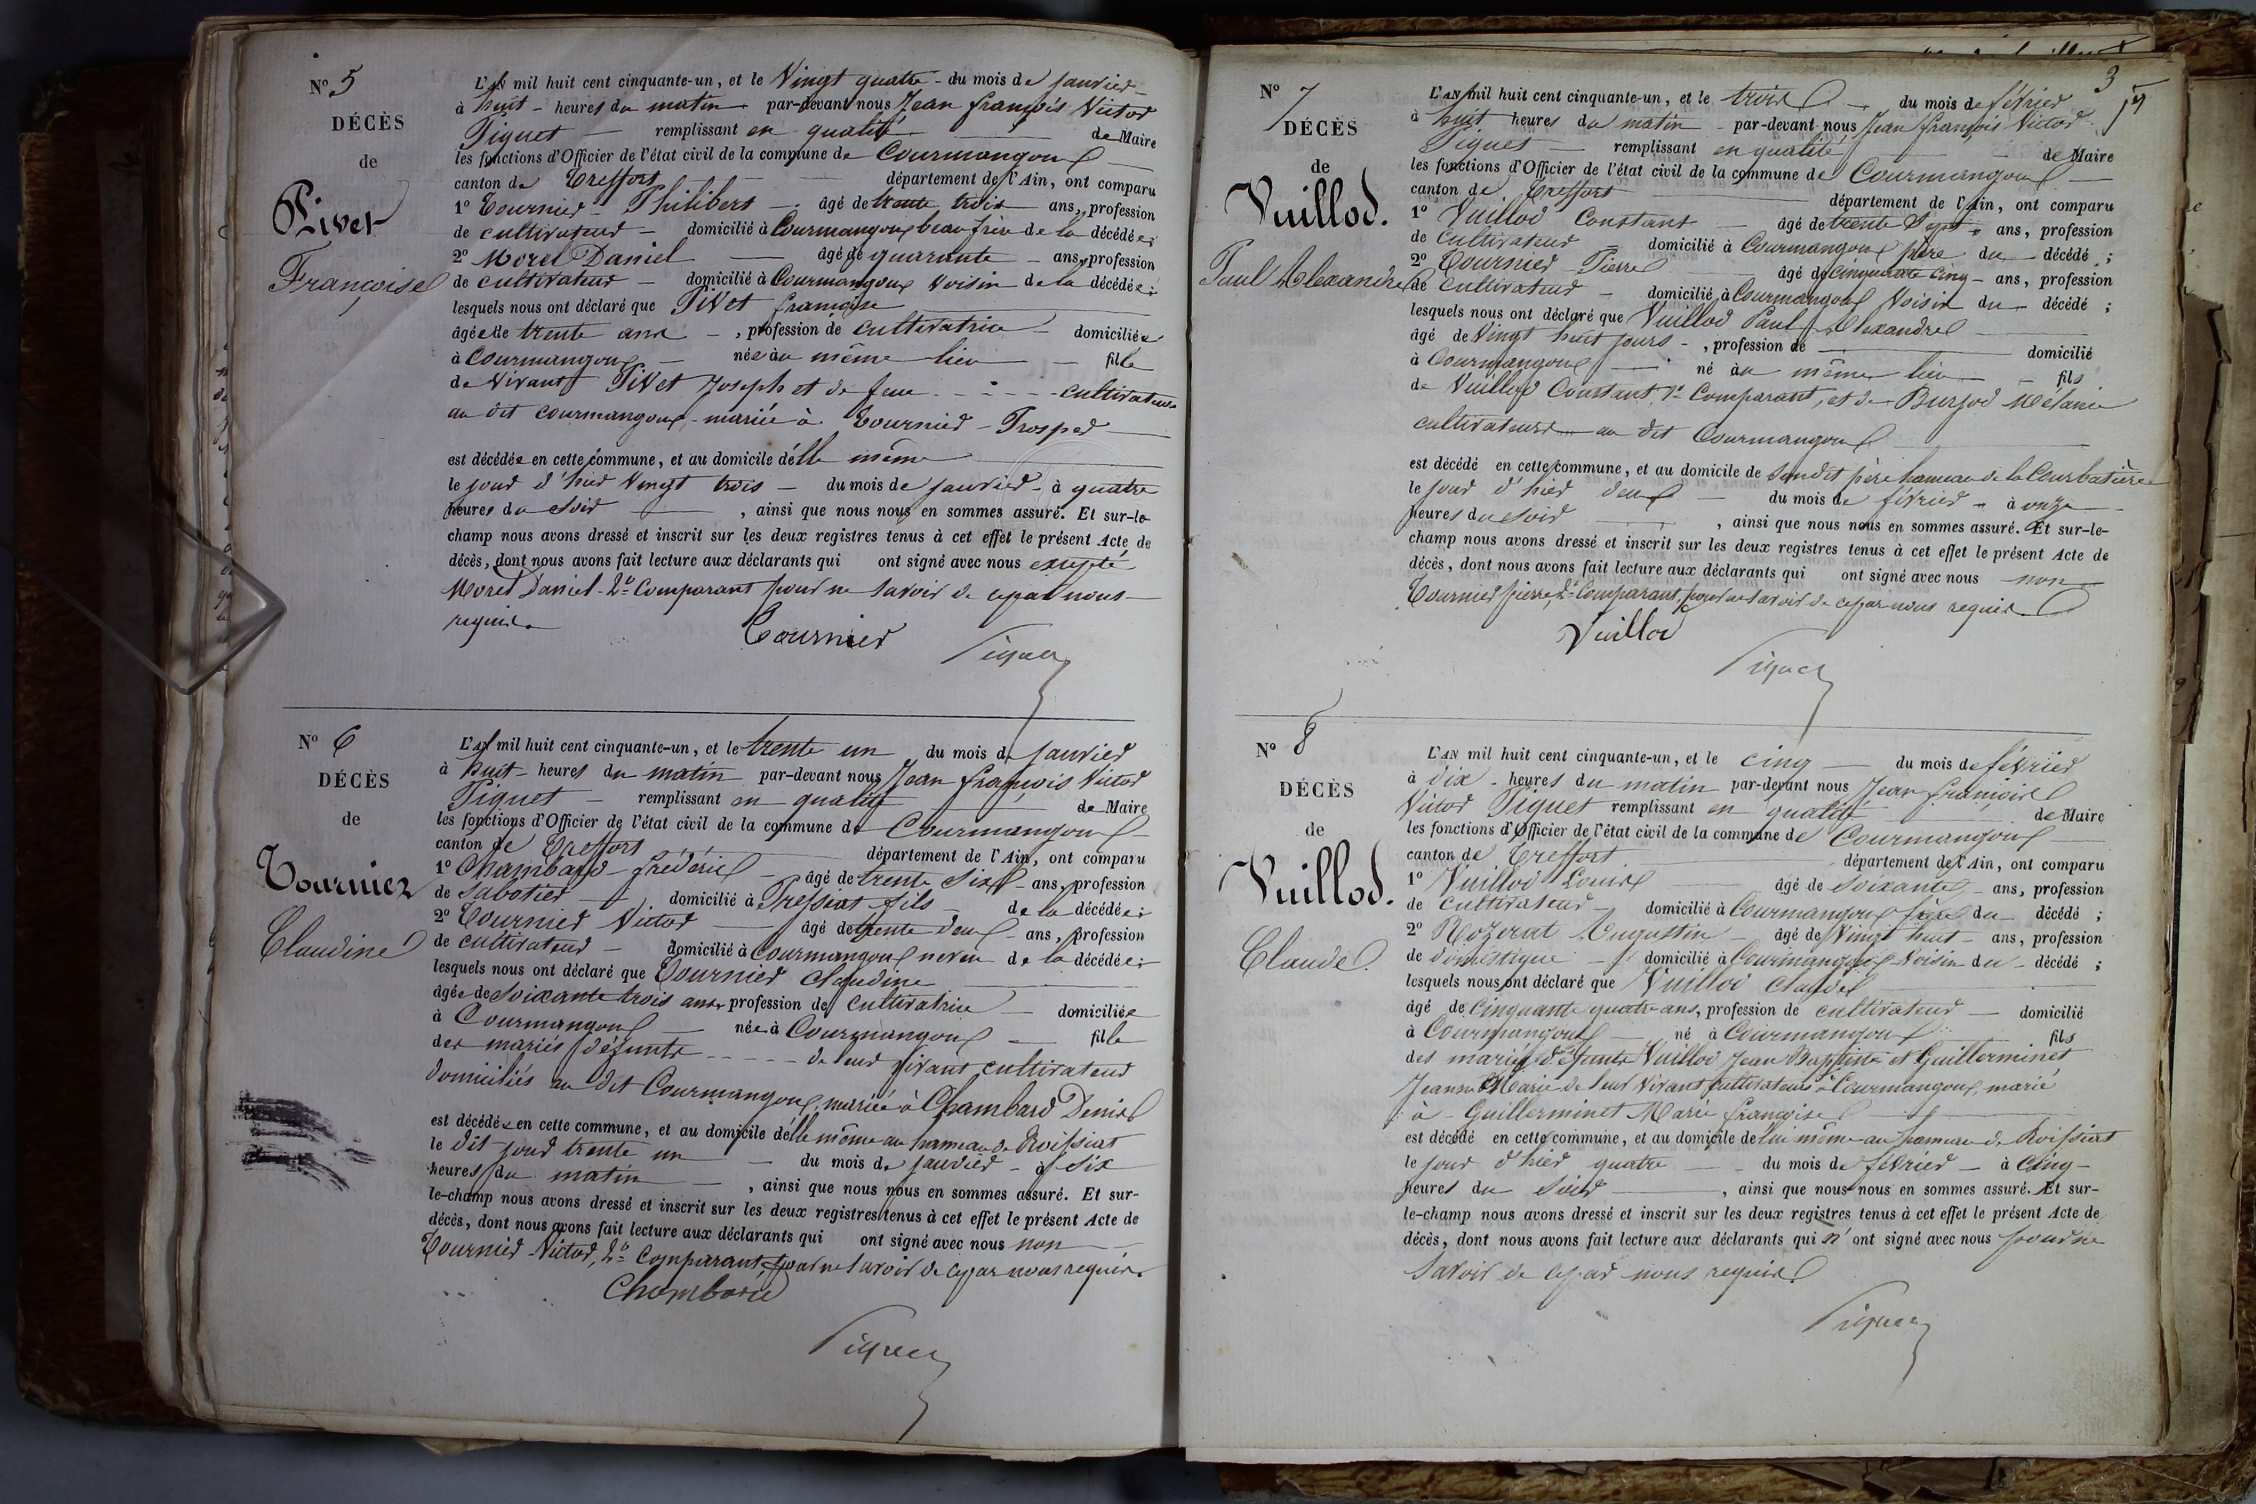 N° 5
DÉCÈS
de
Pivet
Françoise
L'AN mil huit cent cinquante-un, et le Vingt quatre - du mois de janvier
à huit - heures du matin par-devant nous Jean françois Victor
Piquet - remplissant en qualité de Maire
les fonctions d'Officier de l'état civil de la commune de Courmangoux
canton de Treffort département de l'Ain, ont comparu
1° Tournier - Philibert - âgé de trente trois ans, profession
de cultivateur - domicilié à Courmangoux beau frère de la décédée ;
2° Morel Daniel âgé de quarante - ans, profession
de cultivateur - domicilié à Courmangoux voisin de la décédée ;
lesquels nous ont déclaré que Pivet françoise
âgée de trente ans - , profession de cultivatrice - domiciliée
à Courmangoux - née au même lieu - fille
de vivant Pivet Joseph et de feue - - - - - cultivateurs
au dit courmangoux - mariée à Tournier - Prosper
est décédée en cette commune, et au domicile d'elle même
le jour d'hier Vingt trois - du mois de janvier - à quatre
heures du soir , ainsi que nous nous en sommes assuré. Et sur-le
champ nous avons dressé et inscrit sur les deux registres tenus à cet effet le présent Acte de
décès, dont nous avons fait lecture aux déclarants qui ont signé avec nous excepté
Morel Daniel - 2e Comparant pour ne savoir de ce par nous
requis.
Tournier
Piquet
N° 6
DÉCÈS
de
Tournier
Claudine
L'AN mil huit cent cinquante-un, et le trente un du mois de janvier
à huit - heures du matin par-devant nous Jean françois Victor
Piquet - remplissant en qualité de Maire
les fonctions d'Officier de l'état civil de la commune de Courmangoux
canton de Treffort département de l'Ain, ont comparu
1° Chambard - frédéric - âgé de trente six - ans, profession
de sabotier - domicilié à Pressiat - fils de la décédée ;
2° Tournier Victor âgé de trente deux - ans, profession
de cultivateur - domicilié à Courmangoux neveu de la décédée ;
lesquels nous ont déclaré que Tournier Claudine
âgée de soixante trois ans, profession de cultivatrice - domiciliée
à Courmangoux - née à Courmangoux - fille
des mariés défunts - - - - - de leur vivant cultivateurs
domiciliés au dit Courmangoux, mariée à Chambard Denis
est décédée en cette commune, et au domicile d'elle même au hameau de Roissiat
le dit jour trente un - du mois de janvier - à six
heures du matin - , ainsi que nous nous en sommes assuré. Et sur-
le-champ nous avons dressé et inscrit sur les deux registres tenus à cet effet le présent Acte de
décès, dont nous avons fait lecture aux déclarants qui ont signé avec nous non
Tournier Victor, 2e Comparant, pour ne savoir de ce par nous requis.
Chambard
Piquet
3
N° 7
DÉCÈS
de
Vuillod.
Paul Alexandre
L'AN mil huit cent cinquante-un, et le trois - du mois de février
à huit heures du matin - par-devant nous Jean françois Victor
Piquet - remplissant en qualité de Maire
les fonctions d'Officier de l'état civil de la commune de Courmangoux
canton de Treffort département de l'Ain, ont comparu
1° Vuillod Constant - âgé de trente Sept - ans, profession
de cultivateur - domicilié à Courmangoux père du - décédé ;
2° Tournier Pierre âgé de cinquante cinq - ans, profession
de cultivateur - domicilié à Courmangoux voisin du - décédé ;
lesquels nous ont déclaré que Vuillod Paul Alexandre
âgé de Vingt huit jours - , profession de domicilié
à Courmangoux - né au même lieu - fils
de Vuillod Constant, 1er Comparant, et de Burjod Mélanie
cultivateurs au dit Courmangoux
est décédé en cette commune, et au domicile de son dit père hameau de la Courbatière
le jour d'hier deux - du mois de février - à onze
heures du soir , ainsi que nous nous en sommes assuré. Et sur-le-
champ nous avons dressé et inscrit sur les deux registres tenus à cet effet le présent Acte de
décès, dont nous avons fait lecture aux déclarants qui ont signé avec nous non
Tournier pierre, 2e Comparant, pour ne savoir de ce par nous requis.
Vuillod
Piquet
N° 8
DÉCÈS
de
Vuillod.
Claude.
L'AN mil huit cent cinquante-un, et le cinq - du mois de février
à dix - heures du matin par-devant nous Jean françois
Victor Piquet remplissant en qualité de Maire
les fonctions d'Officier de l'état civil de la commune de Courmangoux
canton de Treffort département de l'Ain, ont comparu
1° Vuillod Louis âgé de soixante - ans, profession
de cultivateur - domicilié à Courmangoux frère du - décédé ;
2° Rozerat Augustin - âgé de Vingt huit - ans, profession
de domestique - domicilié à Courmangoux voisin du - décédé ;
lesquels nous ont déclaré que Vuillod Claude
âgé de cinquante quatre ans, profession de cultivateur - domicilié
à Courmangoux - né à Courmangoux fils
des mariés défunts Vuillod Jean Baptiste et Guillerminet
Jeanne Marie de leur vivant cultivateurs à Courmangoux, marié
à - Guillerminet Marie françoise
est décédé en cette commune, et au domicile de lui même au hameau de Roissiat
le jour d'hier quatre - du mois de février - à cinq -
heures du soir , ainsi que nous nous en sommes assuré. Et sur-
le-champ nous avons dressé et inscrit sur les deux registres tenus à cet effet le présent Acte de
décès, dont nous avons fait lecture aux déclarants qui n'ont signé avec nous pour ne
savoir de ce par nous requis.
Piquet